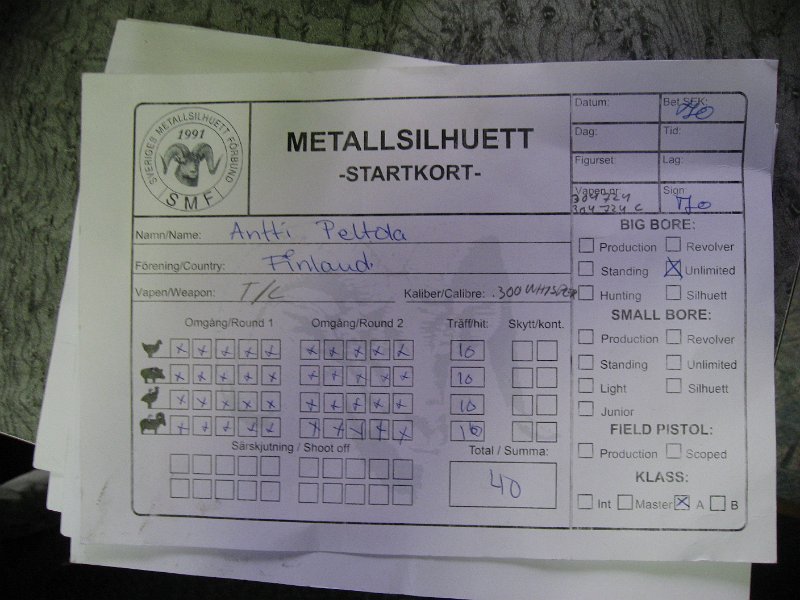 SVERIGES METALLSILHUETT FÖRBUND
1991
SMF
METALLSILHUETT
-STARTKORT-
Datum:
Bet.SEK: 70
Dag:
Tid:
Figurset:
Lag:
Vapen nr:
314724 C
Sign
Namn/Name: Antti Peltola
Förening/Country: Finland
Vapen/Weapon: T/C
Kaliber/Calibre: .300 WHISPER
Omgång/Round 1
Omgång/Round 2
Träff/hit:
Skytt/kont.
x x x x x x x x x x 10
x x x x x x x x x x 10
x x x x x x x x x x 10
x x x x x x x x x x 10
Särskjutning / Shoot off
Total / Summa:
40
BIG BORE:
Production
Revolver
Standing
x Unlimited
Hunting
Silhuett
SMALL BORE:
Production
Revolver
Standing
Unlimited
Light
Silhuett
Junior
FIELD PISTOL:
Production
Scoped
KLASS:
Int Master x A B